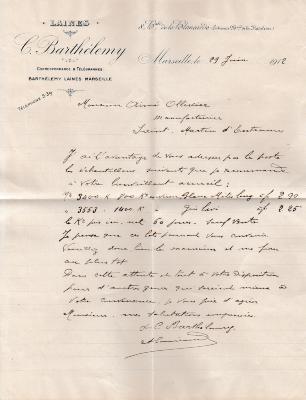 LAINES
C. Barthélemy
CORRESPONDANCE & TÉLÉGRAMMES
BARTHÉLEMY LAINES MARSEILLE
TÉLÉPHONE 5-34
Marseille, le 29 Juin 1912
Monsieur Aimé Ollivier
Manufacturier
Saint Martin d'Entraunes
J'ai l'avantage de vous adresser par la poste
les échantillons suivants que je recommande
à votre bienveillant accueil:
2 90
3553 1400 K
2 25
60 jours. Sauf Vente
Je pense que ces lots peuvent vous convenir
Veuillez donc bien les examiner et me fixer
au plus tôt
Dans cette attente et tout à votre disposition
pour d'autres genres que seraient mieux à
votre convenance, je vous prie d'agréer
Monsieur, mes salutations empressées.
C. Barthélemy